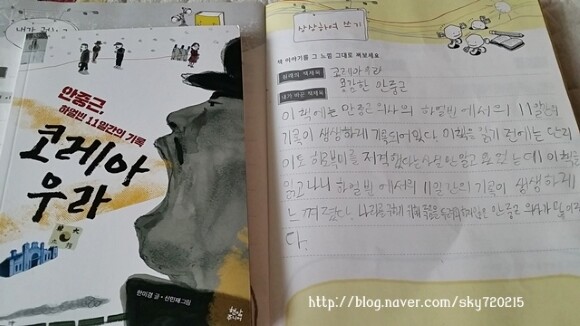 안중근,
하얼빈 11일간의 기록
코레아
우라
한미경 글 • 신민재 그림
현암
상상하여 쓰기
책 이야기를 그 느낌 그대로 써보세요
원래의 책제목
코레아 우라
내가 바꾼 책제목
용감한 안중근
이 책에는 안중근 의사의 하얼빈에서의 11일간의
기록이 생생하게 기록되어있다. 이 책을 읽기 전에는 단지
이토 히로부미를 저격했다는 사실만 알고 있었는데 이 책을
읽고나니 하얼빈에서의 11일간의 기록이 생생하게
느껴졌다. 나라를 위해 죽음을 안중근 의사가
다.
http://blog.naver.com/sky720215